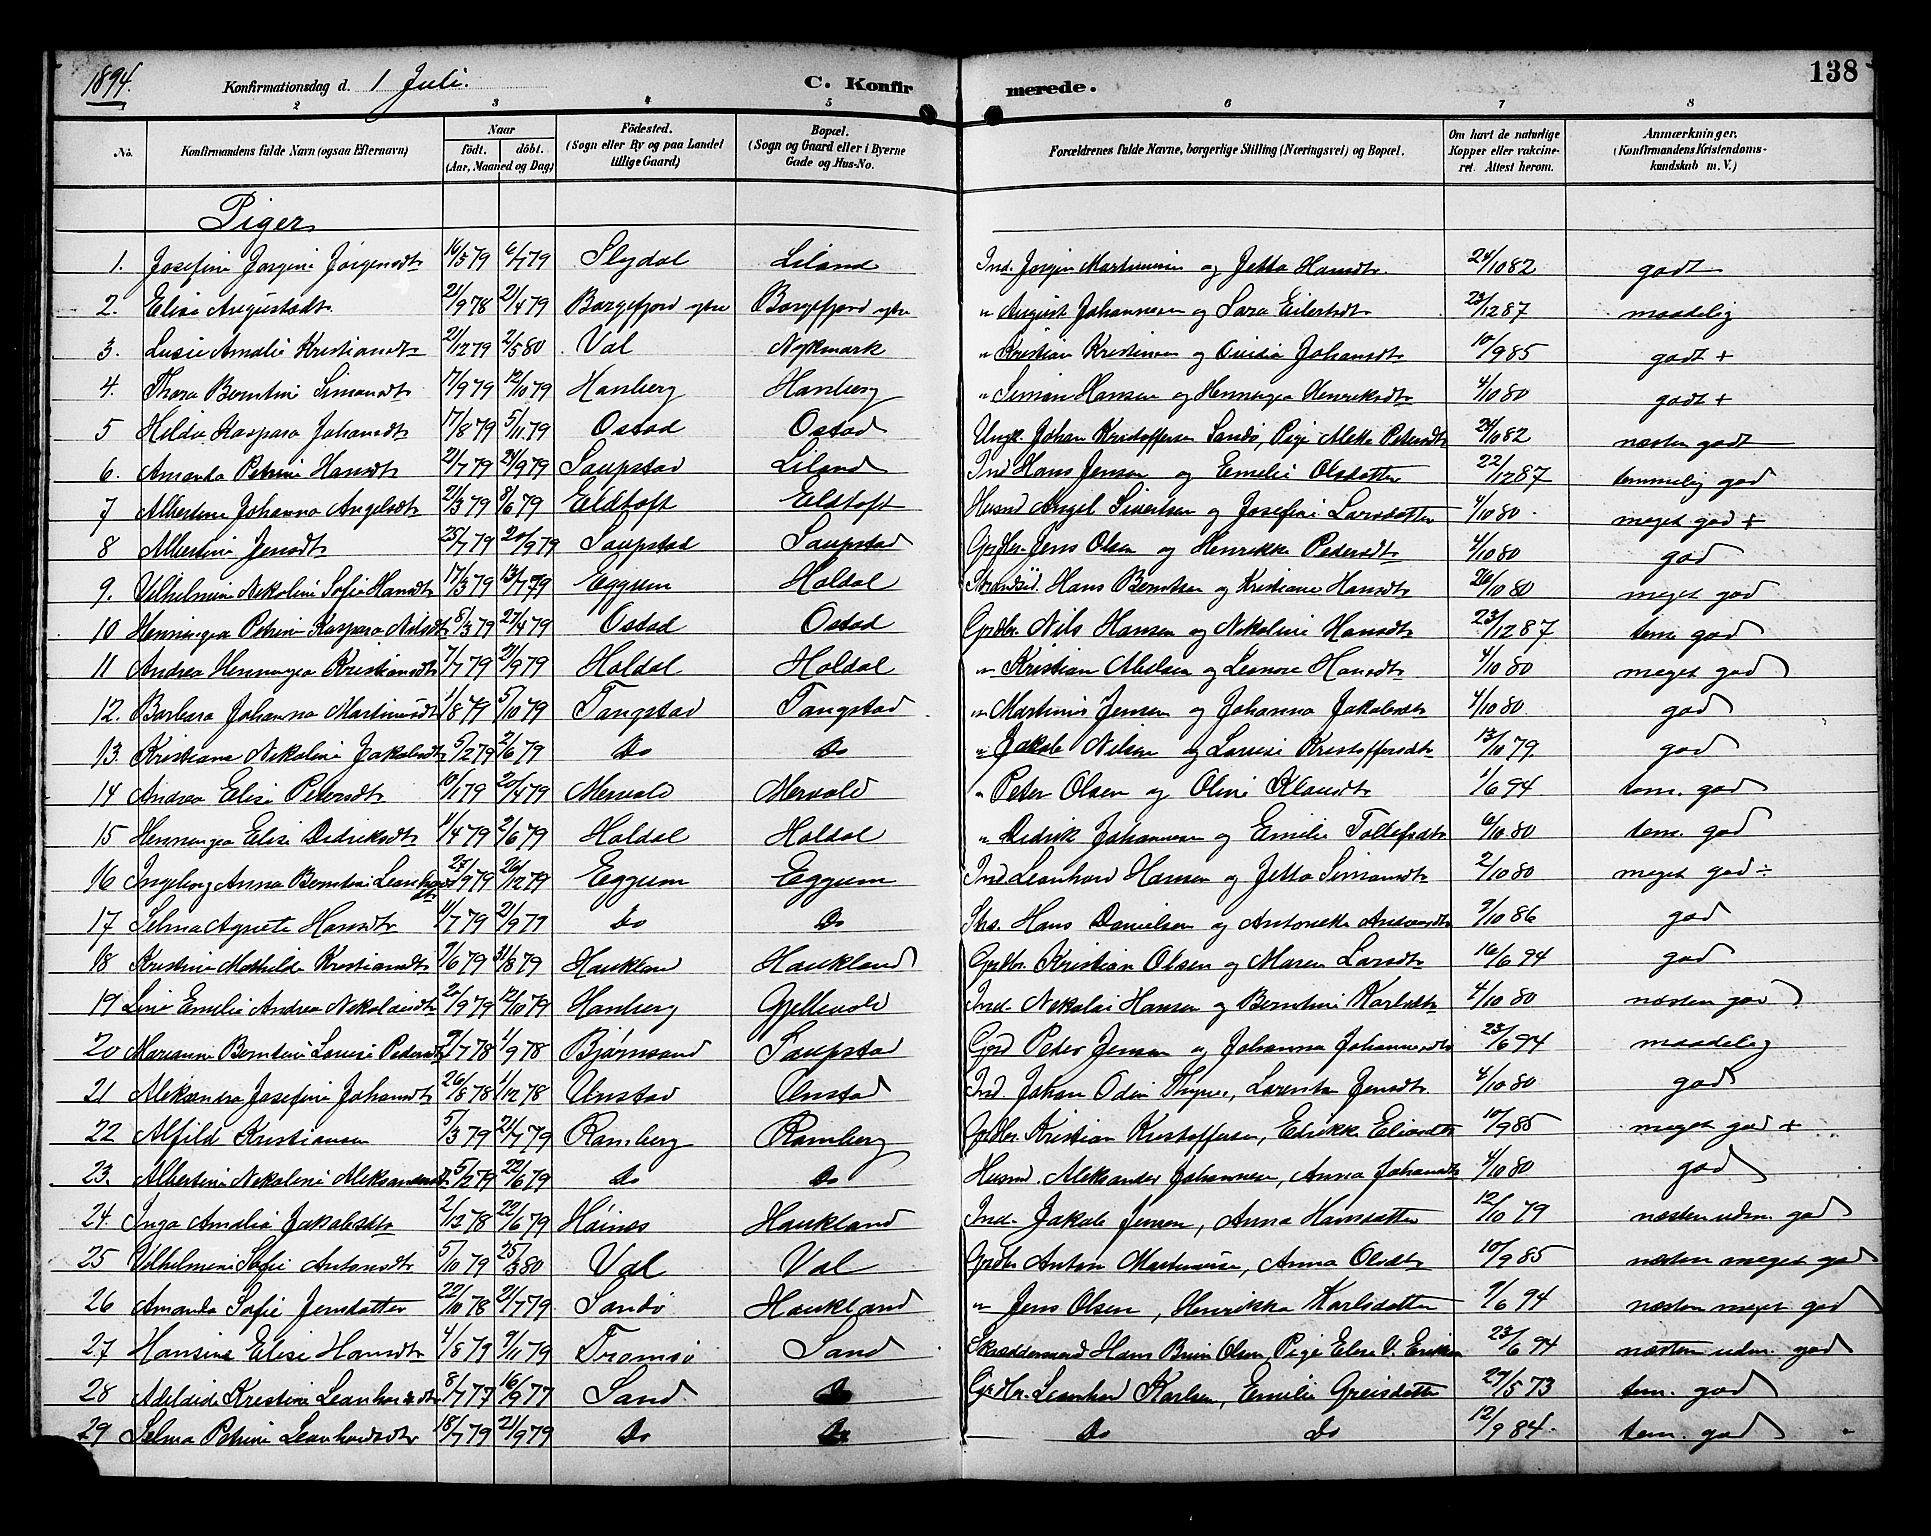 138
1894. Konfirmationsdag d. 1 Juli. C. Konfirmerede.
2 3 4 5 6 7 8
No. Konfirmandens fulde Navn (ogsaa Efternavn) Naar födt. döbt. (Aar, Maaned og Dag) Födested. (Sogn eller By og paa Landet tillige Gaard) Bopæl. (Sogn og Gaard eller i Byerne Gade og Hus-No. Forældrenes fulde Navne, borgerlige Stilling (Næringsvei) og Bopæl. Om havt de naturlige Kopper eller vakcineret. Attest herom. Anmærkninger. (Konfirmandens Kristendomskundskab m. V.)
Piger
1. Josefine Jørgine Jørgensdtr 16/5 79 6/7 79 Slydal Liland Ind. Jørgen Martinusen og Jetta Hansdtr. 24/10 82 godt
2. Elise Augustsdtr 21/9 78 21/4 79 Borgefjord ytre Borgefjord ytre " August Johannesen og Sara Eilertsdtr 23/12 87 maadelig
3. Lusie Amalie Kristiansdtr 21/12 79 2/5 80 Val Nykmark " Kristian Kristensen og Ovidia Johansdtr 10/9 85 godt +
4. Thora Berntine Simonsdtr 17/9 79 12/10 79 Hanberg Hanberg " Simon Hansen og Henningea Henriksdtr 4/10 80 godt +
5 Hilda Kaspara Johansdtr 17/8 79 5/11 79 Ostad Ostad Ungk. Johan Kristoffersen Sandø, Pige Meka Petersdtr 24/10 82 næsten godt
6. Amanda Petrine Hansdtr 21/7 79 21/9 79 Saupstad Liland Ind Hans Jensen og Emelie Olsdatter 22/12 87 temmelig god
7 Albertine Johanna Angelsdtr 21/3 79 8/6 79 Eldtoft Eldtoft Husmd Angel Sivertsen og Josefine Larsdatter 4/10 80. meget god +
8 Albertine Jensdtr 25/7 79 20/9 79 Saupstad Saupstad Grdbr. Jens Olsen og Henrikke Pedersdtr 4/10 80 god
9. Vilhelmine Nikoline Sofie Hansdtr 17/3 79 13/7 79 Eggum Holdal Strandsid. Hans Berntsen og Kristiane Hansdtr 26/10 80 meget god
10 Henningea Petrine Kaspara Nilsdtr 8/3 79 27/4 79 Ostad Ostad Grdbr. Nils Hansen og Nikoline Hansdtr 23/12 87 tem. god
11 Andrea Henningea Kristiansdtr 7/7 79 21/9 79 Holdal Holdal " Kristian Nielsen og Leonore Hansdtr 4/10 80 meget god
12. Barbara Johanna Martinusdtr 1/8 79 5/10 79 Tangstad Tangstad " Martinus Jensen og Johanna Jakobsdtr 4/10 80. god
13. Kristiane Nikoline Jakobsdtr 5/2 79 2/6 79 Do Do " Jakob Nilsen og Lovise Kristoffersdtr 13/10 79 god
14 Andrea Elise Petersdtr 10/1 79 20/4 79 Mervold Mervold " Peter Olsen og Oline Klausdtr 1/6 94 tem. god
15 Henningea Elise Didriksdtr 1/4 79 2/6 79 Holdal Holdal " Didrik Johannesen og Emilie Tollefsdtr 6/10 80 tem. god
16 Ingeborg Anna Berntine Leonhardsdtr 25/9 79 26/12 79 Eggum Eggum Ind Leonhard Hansen og Jetta Simonsdtr 2/10 80 meget god ÷
17 Selma Agnete Hansdtr 4/7 79 21/9 79 Do Do Strs. Hans Danielsen og Antonette Andreasdtr 2/10 86 god
18 Kristine Mathilde Kristiansdtr 7/6 79 31/8 79 Haukland Haukland Grdbr. Kristian Olsen og Maren Larsdtr 16/6 94 god
19 Line Emelie Andrea Nikolaisdtr 20/9 79 12/10 79 Hanberg Gjellevold Ind. Nikolai Hansen og Berntine Karlsdtr 4/10 80 næsten god
20 Marianne Berntine Lovise Pedersdtr 9/7 78 1/9 78 Bjørnsand Saupstad Grd Peder Jensen og Johanna Johannesdtr 23/6 94 maadelig
21 Aleksandra Josefine Johansdtr 26/8 78 1/12 78 Unstad Unstad Ind Johan Odin Thynes, Lorentse Jensdtr 4/10 80 god
22 Alfild Kristiansen 5/3 79 21/7 79 Ramberg Ramberg Grdbr. Kristian Kristoffersen, Edrikke Eliasdtr 10/9 85 meget god +
23. Albertine Nikoline Aleksandersdtr 5/2 79 22/6 79 Do Do Husmd. Aleksander Johannesen, Anna Johansdtr 4/10 80 god
24. Inga Amalia Jakobsdtr 2/12 78 22/6 79 Høines Haukland Ind. Jakob Jensen, Anna Hansdatter 12/10 79 næsten udm. god
25 Vilhelmine Sofie Antonsdtr 5/10 79 25/3 80 Val Val Grdbr Anton Martinusen, Anna Olsdtr 10/9 85 næsten meget god
26 Amanda Sofie Jensdatter 22/10 78 21/7 79 Sandø Haukland " Jens Olsen, Henrikka Karlsdatter 7/6 94 næsten meget god
27 Hansine Elise Hansdtr 4/5 79 9/11 79 Tromsø Sand Skræddersvend Hans Bruun Olsen, Pige Elen V. Eriksen 23/6 94 næsten udm. god
28 Adelaide Kristine Leonhardsdtr 8/7 77 16/9 77 Sand Do Grdbr. Leonhard Karlsen, Emilie Greisdatter 27/5 73 tem. god
29 Selma Petrine Leonhardsdtr 18/7 79 21/9 79 Do Do Do Do 12/9 84. tem. god